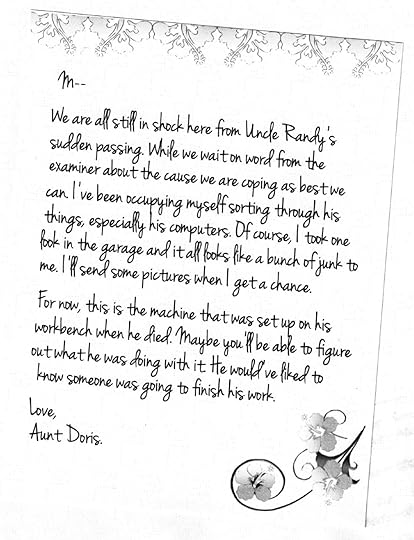 M--
We are all still in shock here from Uncle Randy's
sudden passing. While we wait on word from the
examiner about the cause we are coping as best we
can. I've been occupying myself sorting through his
things, especially his computers. Of course, I took one
look in the garage and it all looks like a bunch of junk to
me. I'll send some pictures when I get a chance.
For now, this is the machine that was set up on his
workbench when he died. Maybe you'll be able to figure
out what he was doing with it. He would've liked to
know someone was going to finish his work.
Love,
Aunt Doris.